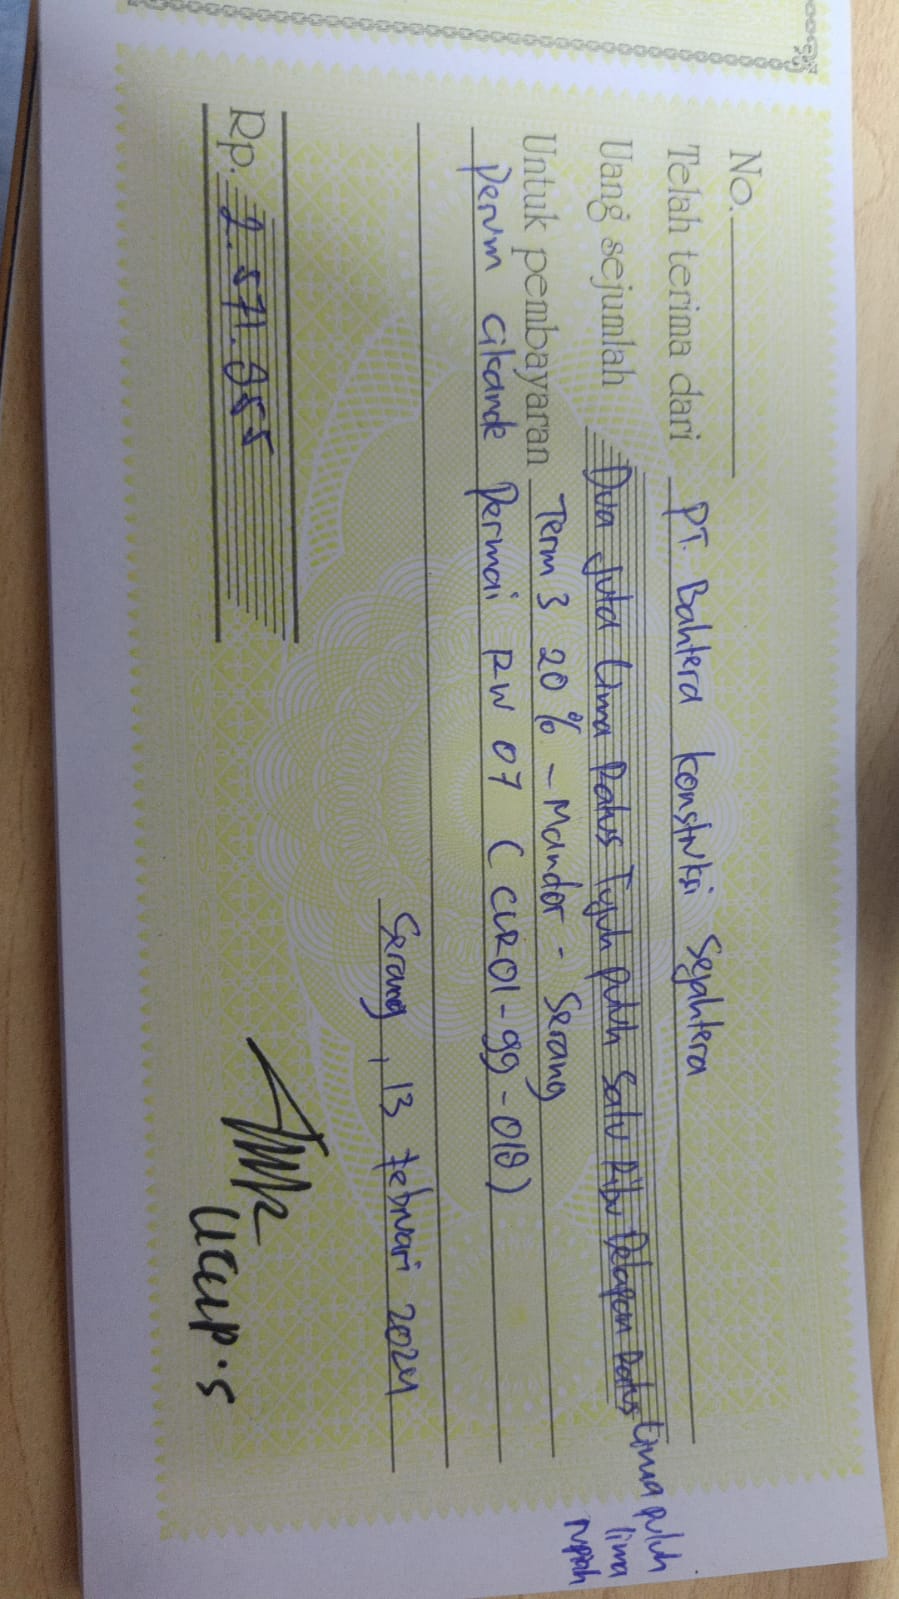 No.
Telah terima dari PT. Bahtera konstruksi Sejahtera
Uang sejumlah Dua Juta Lima Ratus Tujuh puluh Satu Ribu Delapan Ratus Lima puluh lima rupiah
Untuk pembayaran Term 3 20 % - Mandor - Serang
Perum Cikande Permai RW 07 ( CLR01-99-018 )
Serang, 13 Februari 2024
Rp. 2.571.855
Ucup.s